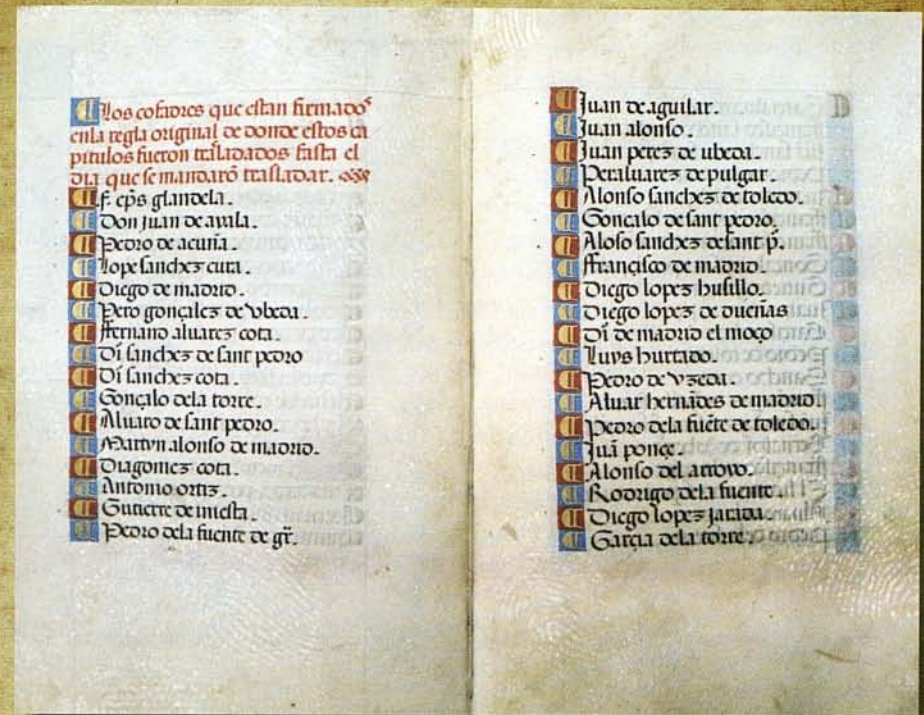 Los cofadres que estan firmados
enla regla original de donde estos ca
pitulos fueron trasladados fasta el
dia que se mandarõ trasladar.
f. ep̃s glandela.
Don juan de ayala.
Pedro de acuña.
lope sanchez cuta.
Diego de madrid.
Pero gonçalez de vbeda.
ffernand aluarez cota.
Dĩ sanchez de sant pedro
Dĩ sanchez cota.
Gonçalo dela torre.
Aluaro de sant pedro.
Martyn alonso de madrid.
Diagomez cota.
Antonio ortiz.
Gutierre de iniesta.
Pedro dela fuente de gr̃.
Juan de aguilar.
Juan alonso.
Juan perez de vbeda.
Peraluarez de pulgar.
Alonso sanchez de toledo.
Goncalo de sant pedro.
Aloso sanchez desant p̃.
ffrançisco de madrid.
Diego lopez husillo.
Diego lopez de dueñas
Dĩ de madrid el moço
Luys hurtado.
Pedro de vzeda.
Aluar hernãdes de madrid
Pedro dela fuẽte de toledo.
Juã ponçe.
Alonso del arroyo.
Rodrigo dela fuente.
Diego lopez jarada.
Garçia dela torre.